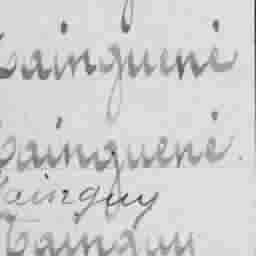 Tainguené
Tainguené.
Tainguy
Tainguy